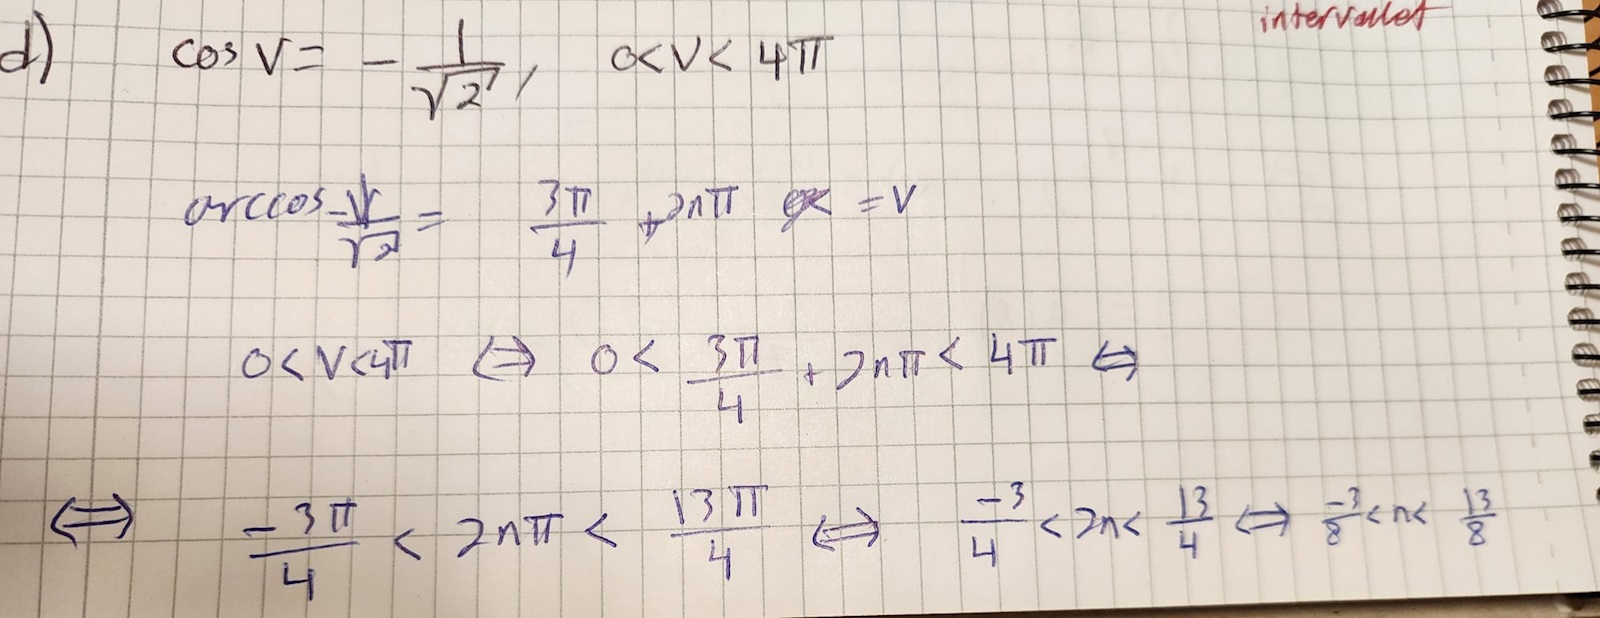 intervallet
d) cos v = - 1/√2, 0<v< 4π
arccos -1/√2 = 3π/4 + 2nπ = v
0<v<4π ⇔ 0 < 3π/4 + 2nπ < 4π ⇔
⇔ -3π/4 < 2nπ < 13π/4 ⇔ -3/4 < 2n < 13/4 ⇔ -3/8 < n < 13/8